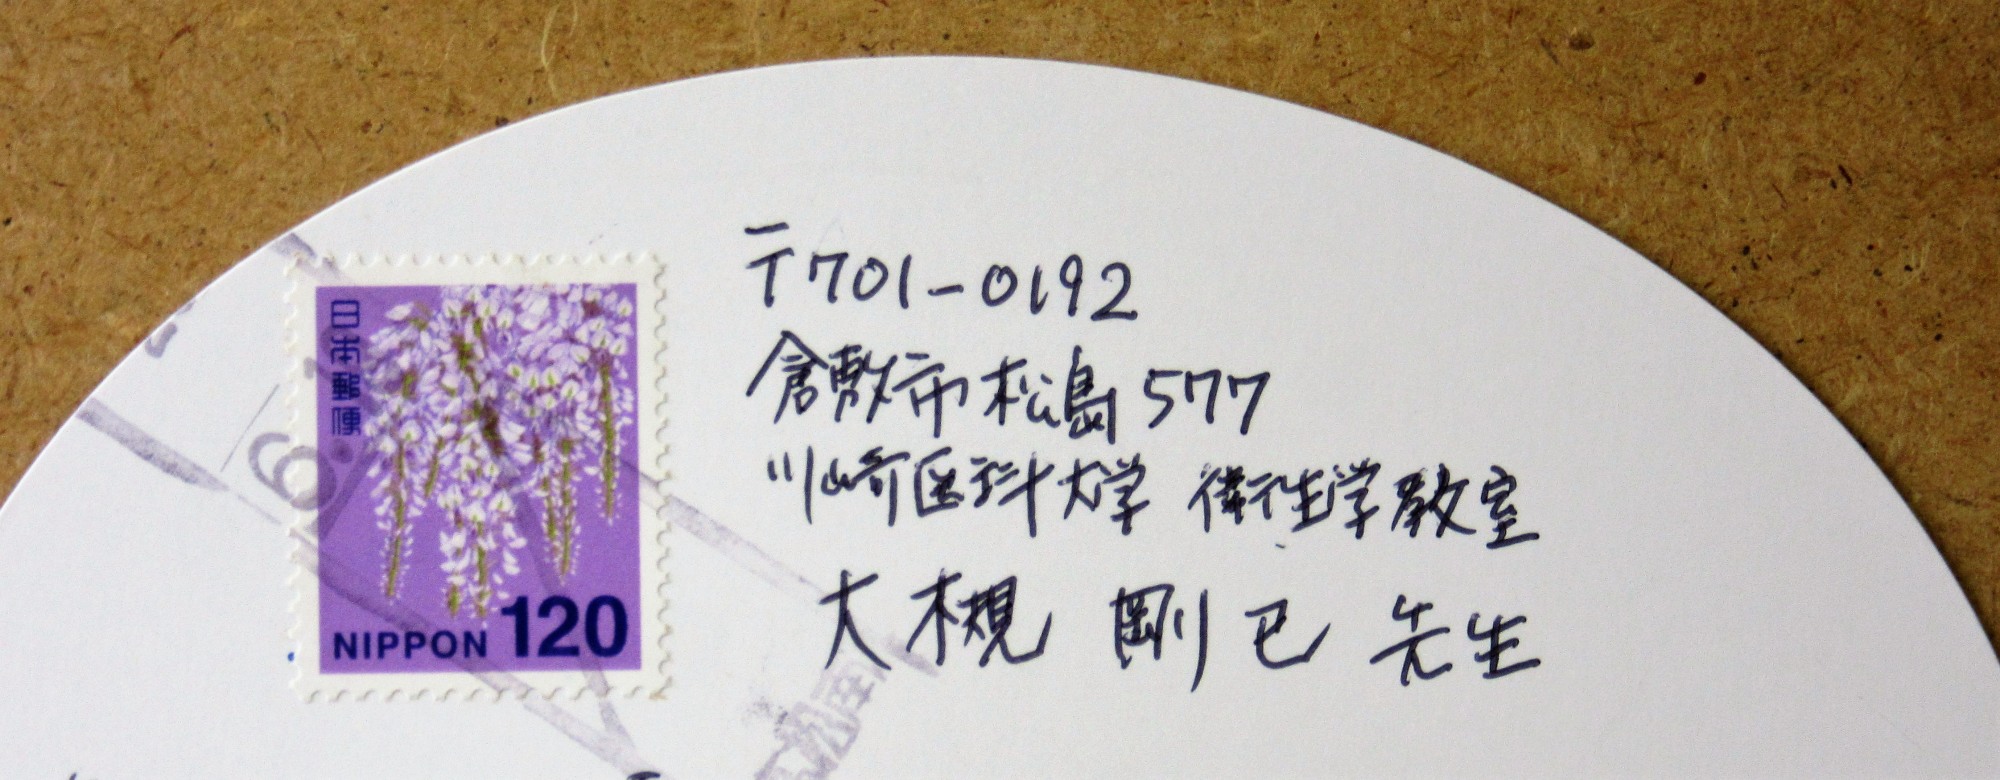 日本郵便
NIPPON 120
〒701-0192
倉敷市松島577
川崎医科大学 衛生学教室
大槻 剛巳 先生